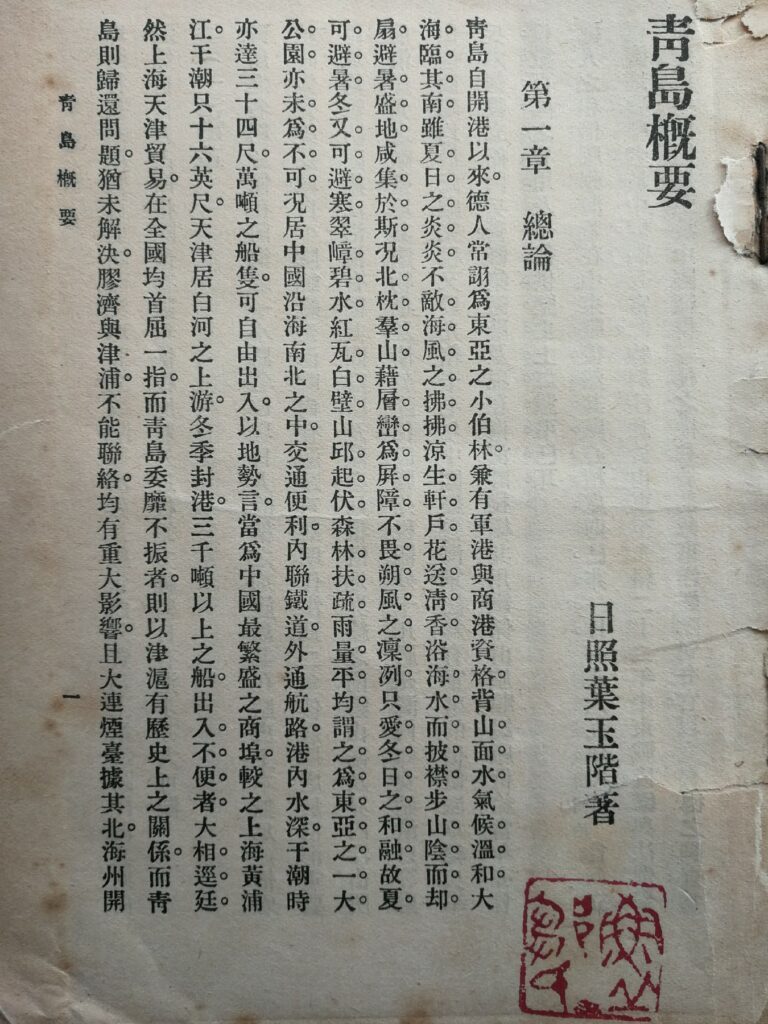 靑島概要
日照葉玉階著
第一章　總論
靑島自開港以來。德人常詡爲東亞之小伯林。兼有軍港與商港資格。背山面水。氣候溫和。大
海臨其南。雖夏日之炎炎。不敵海風之拂拂。涼生軒戶。花送淸香。浴海水而披襟。步山陰而却
扇。避暑盛地。咸集於斯。况北枕羣山。藉層巒爲屏障。不畏朔風之凜冽。只愛冬日之和融。故夏
可避暑。冬又可避寒。翠嶂碧水。紅瓦白壁。山邱起伏。森林扶疏。雨量平均。謂之爲東亞之一大
公園。亦未爲不可。况居中國沿海南北之中。交通便利。內聯鐵道。外通航路。港內水深。干潮時
亦達三十四尺。萬噸之船隻。可自由出入。以地勢言。當爲中國最繁盛之商埠。較之上海黃浦
江。干潮只十六英尺。天津居白河之上游。冬季封港。三千噸以上之船。出入不便者。大相逕廷。
然上海天津貿易。在全國均首屈一指。而靑島委靡不振者。則以津滬有歷史上之關係。而靑
島則歸還問題。猶未解決。膠濟與津浦。不能聯絡。均有重大影響。且大連煙臺據其北。海州開
靑島概要
一